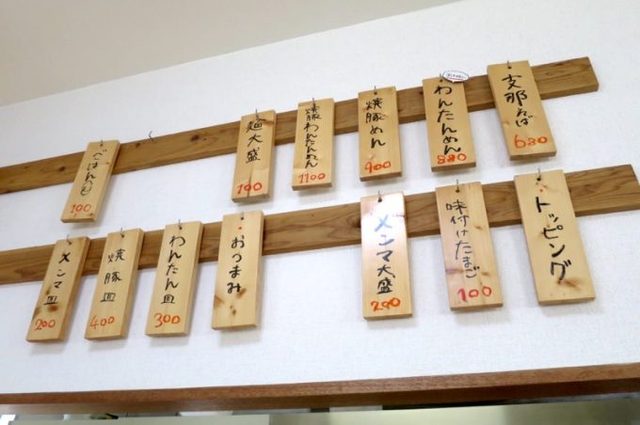 支那そば
680
わんたんめん
880
焼豚めん
900
焼豚わんたんめん
1100
麺大盛
100
100
トッピング
味付けたまご
100
メンマ大盛
200
おつまみ
わんたん皿
300
焼豚皿
400
メンマ皿
200